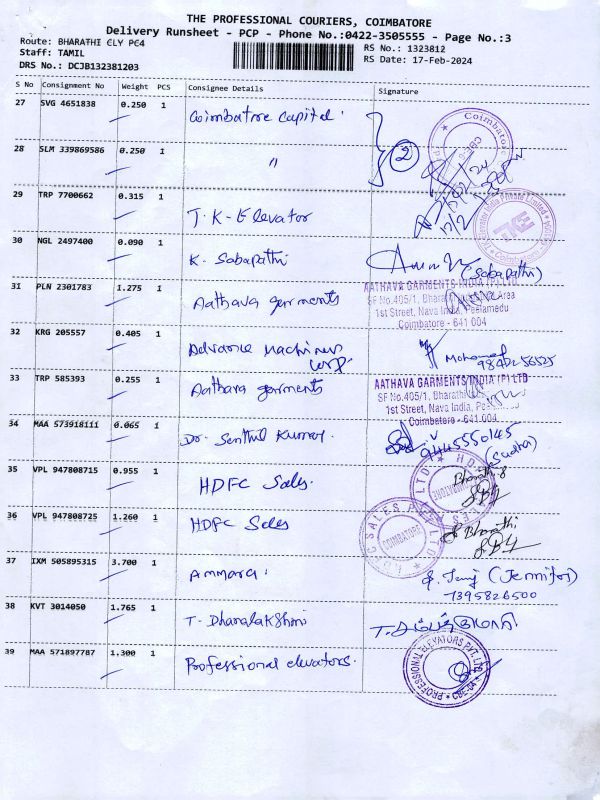 THE PROFESSIONAL COURIERS, COIMBATORE
Delivery Runsheet - PCP - Phone No.:0422-3505555 - Page No.:3
Route: BHARATHI CLY PC4
RS No.: 1323812
Staff: TAMIL
RS Date: 17-Feb-2024
DRS No.: DCJB132381203
S No Consignment No Weight PCS Consignee Details Signature
27 SVG 4651838 0.250 1 Coimbatore Capital
28 SLM 339869586 0.250 1 "
2
29 TRP 7700662 0.315 1 T.K-Elevator
30 NGL 2497400 0.090 1 K. Sabapathi (Sabapathi)
31 PLN 2301783 1.275 1 Aathava garments
AATHAVA GARMENTS INDIA (P) LTD
SF No.405/1, Bharathi Area
1st Street, Nava India, Peelamedu
Coimbatore - 641 004
32 KRG 205557 0.405 1 Advance Machinery Corp. Mohamed
98422 56525
33 TRP 585393 0.255 1 Aathava garments
AATHAVA GARMENTS INDIA (P) LTD
SF No.405/1, Bharathi
1st Street, Nava India,
Coimbatore - 641 004
34 MAA 573918111 0.065 1 Dr. Senthil Kumar 9445550145
(Sudha)
35 VPL 947808715 0.955 1 HDFC Sales. Bharathi
36 VPL 947808725 1.260 1 HDFC Sales Bharathi
HDFC SALES PVT LTD
COIMBATORE
37 IXM 505895315 3.700 1 Ammara (Jennifer)
7395826500
38 KVT 3014050 1.765 1 T. Dhanalakshmi
39 MAA 571897787 1.300 1 Professional elevators.
PROFESSIONAL ELEVATORS PVT. LTD
CBE-04